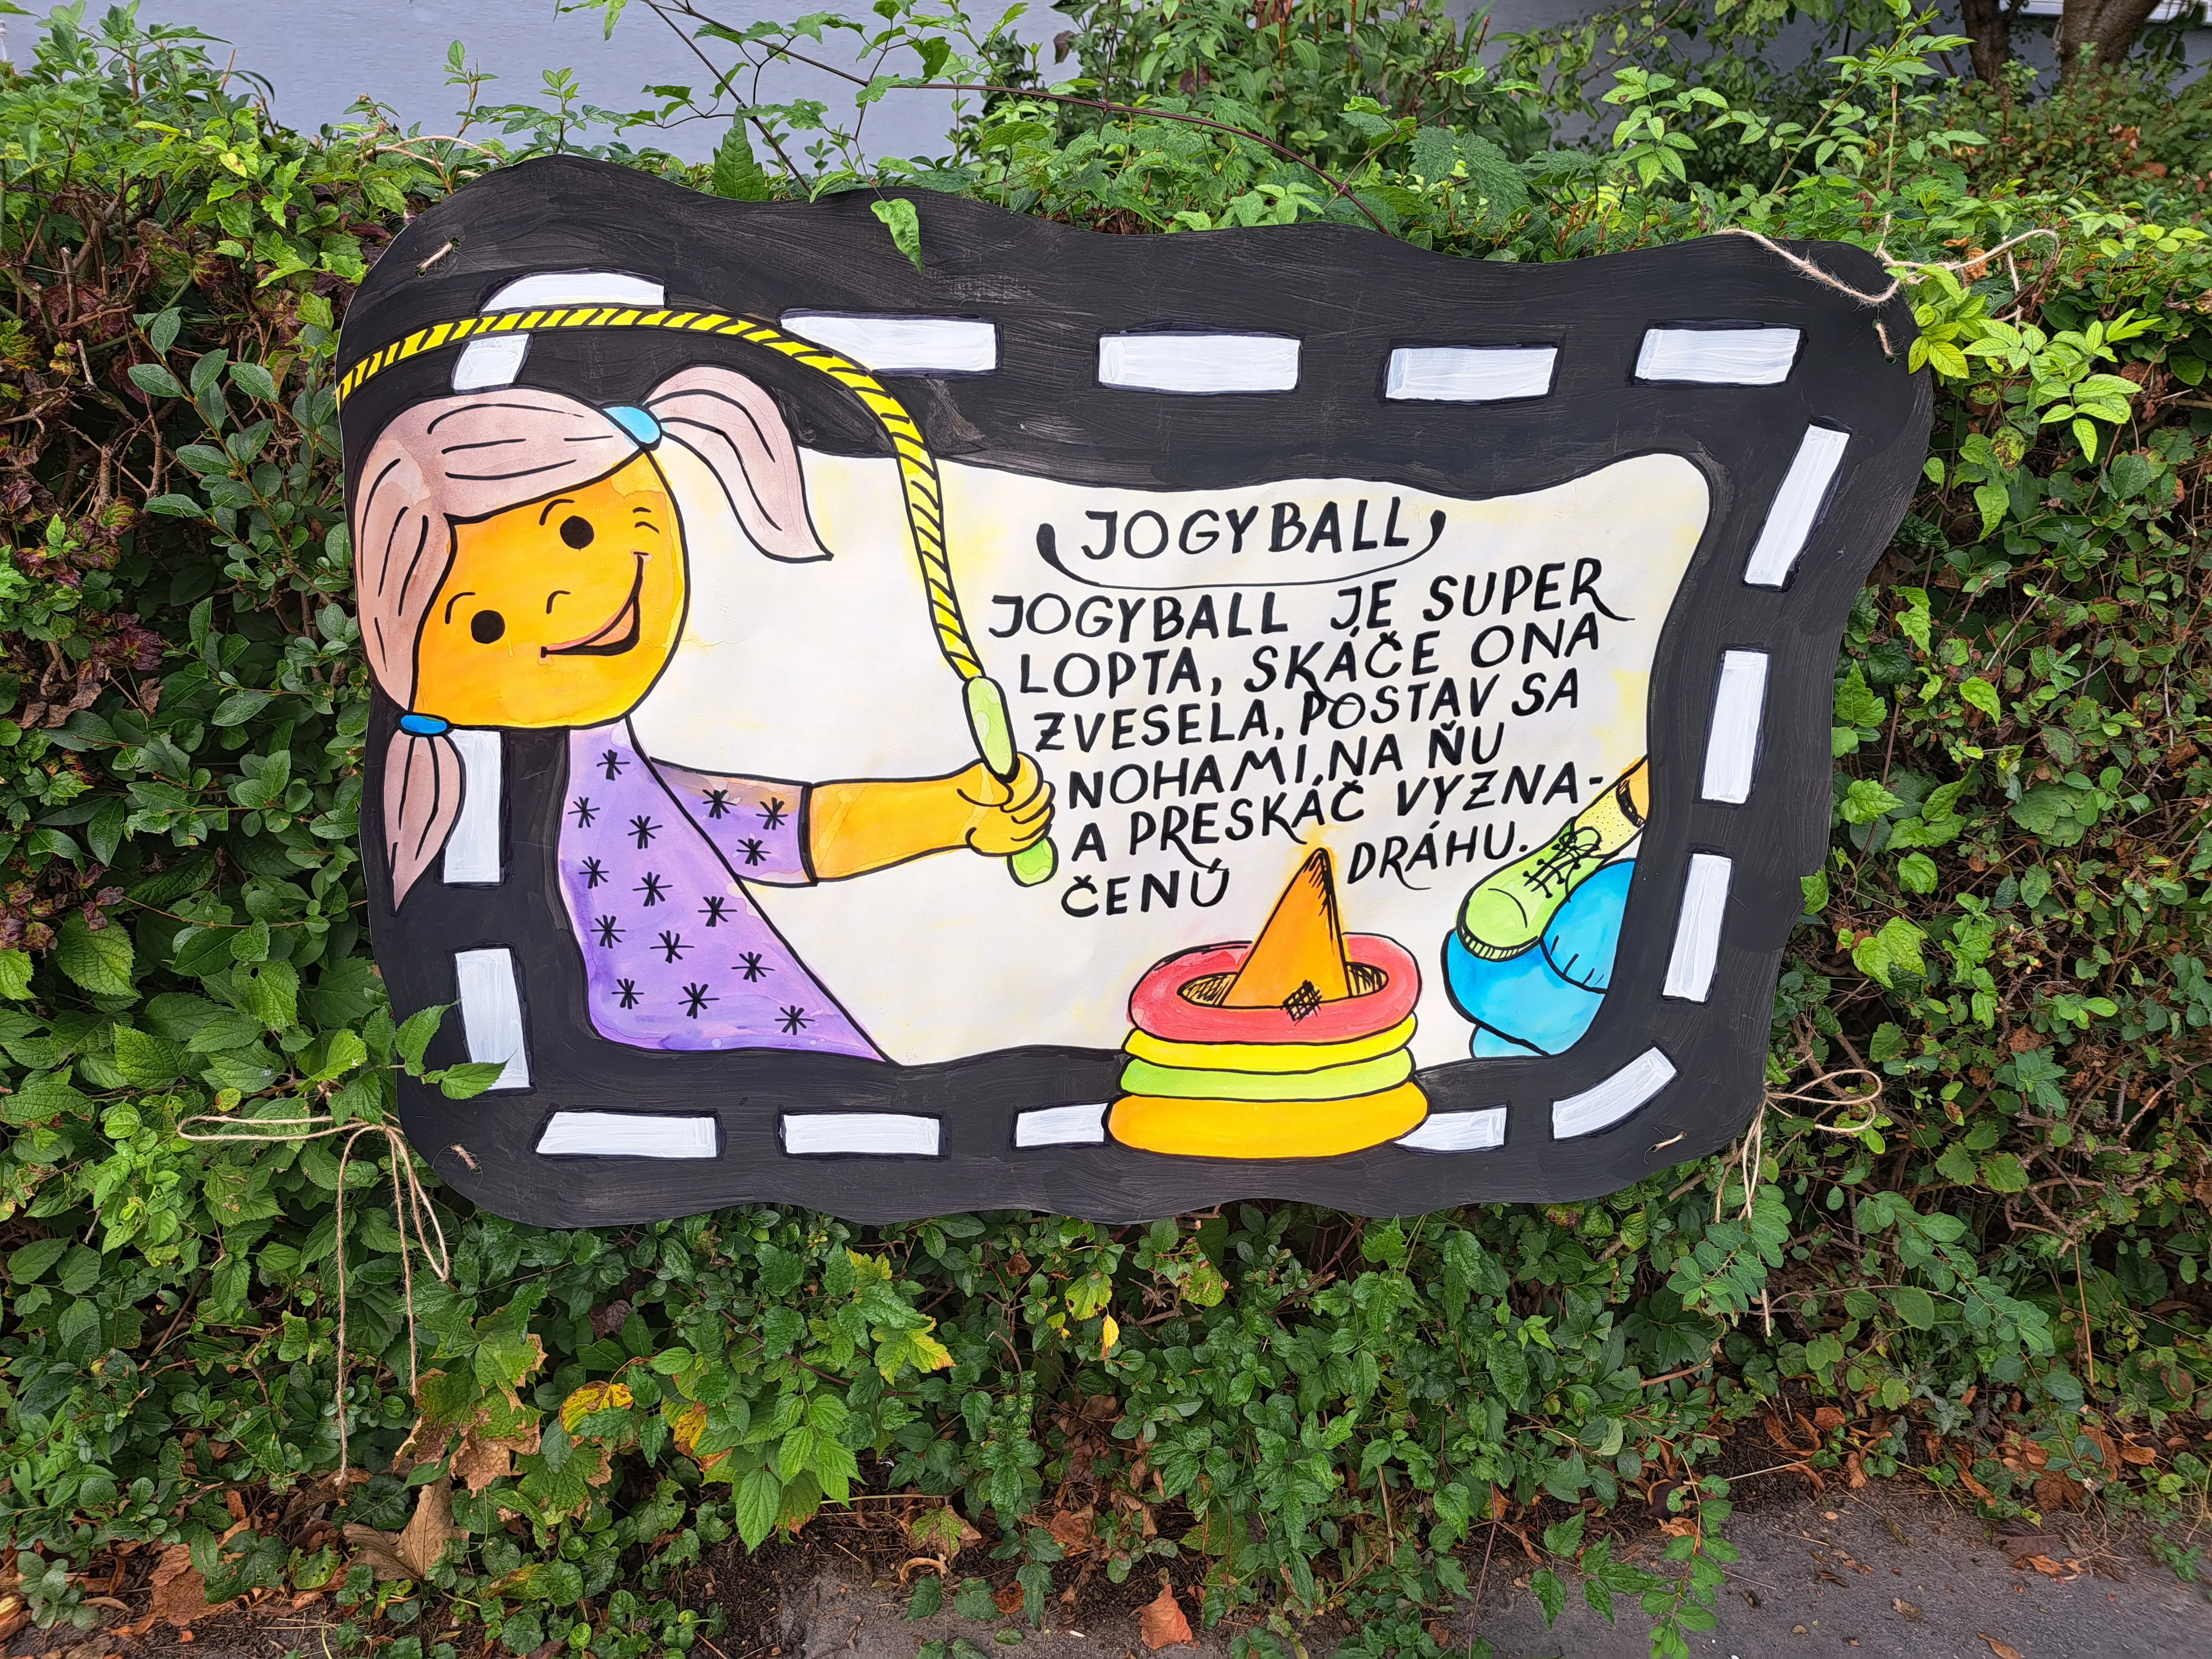 JOGYBALL
JOGYBALL JE SUPER
LOPTA, SKÁČE ONA
ZVESELA, POSTAV SA
NOHAMI, NA ŇU
A PRESKÁČ VYZNA-
ČENÚ DRÁHU.